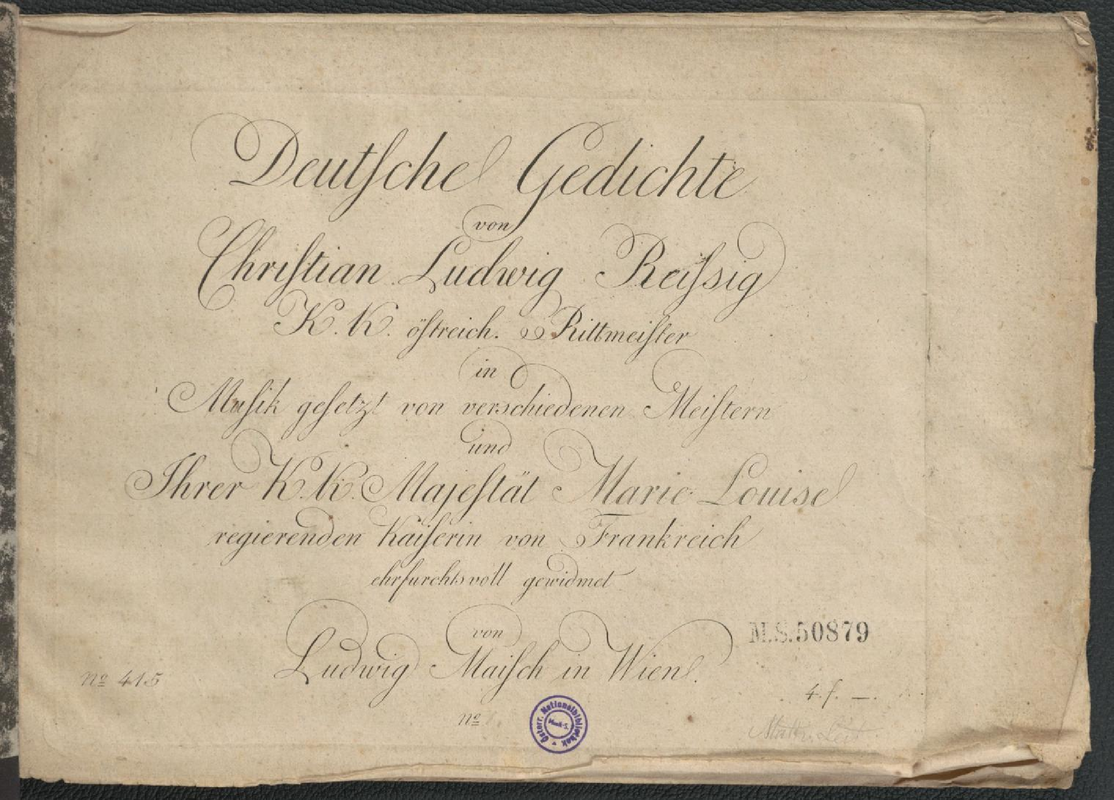 Deutsche Gedichte
von
Christian Ludwig Reissig
K. K. östreich. Rittmeister
in
Musik gesetzt von verschiedenen Meistern
und
Ihrer K. K. Majestät Marie Louise
regierenden Kaiserin von Frankreich
ehrfurchtsvoll gewidmet
von
Ludwig Maisch in Wien.
M.S. 50879
No 415
4 f. —
No
Österr. Nationalbibliothek